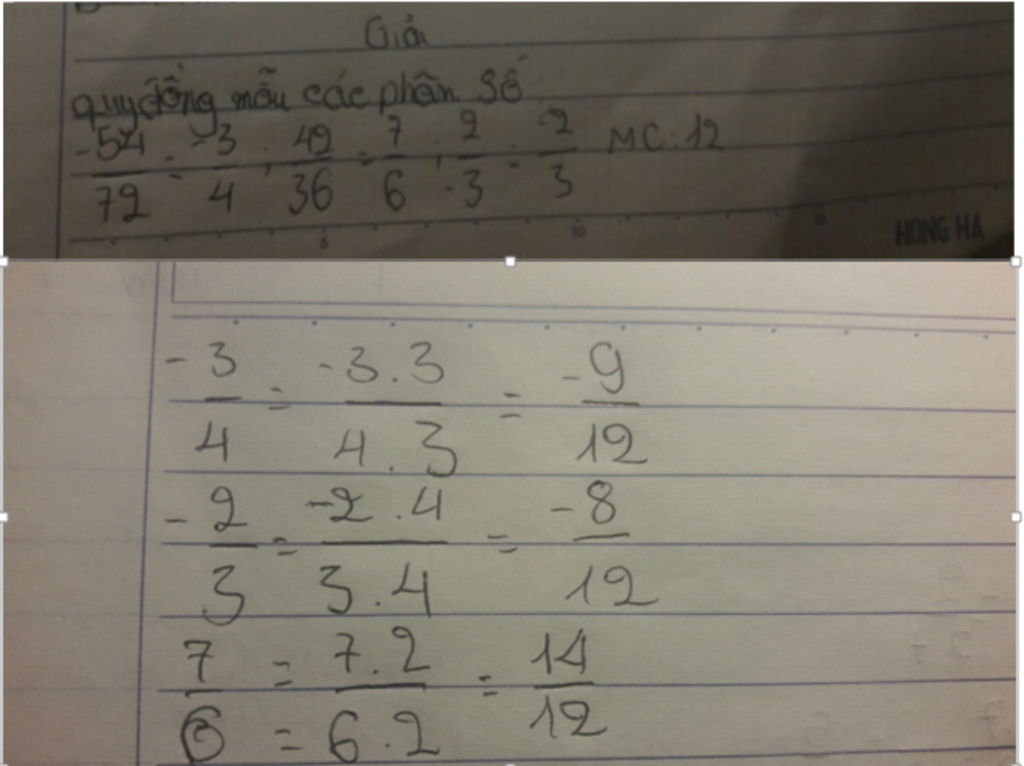 Giải
quy đồng mẫu các phân số
-54/72 = -3/4 ; 42/36 = 7/6 ; 2/-3 = -2/3 MC: 12
5 10 15
HONG HA
-3/4 = -3.3/4.3 = -9/12
-2/3 = -2.4/3.4 = -8/12
7/6 = 7.2/6.2 = 14/12